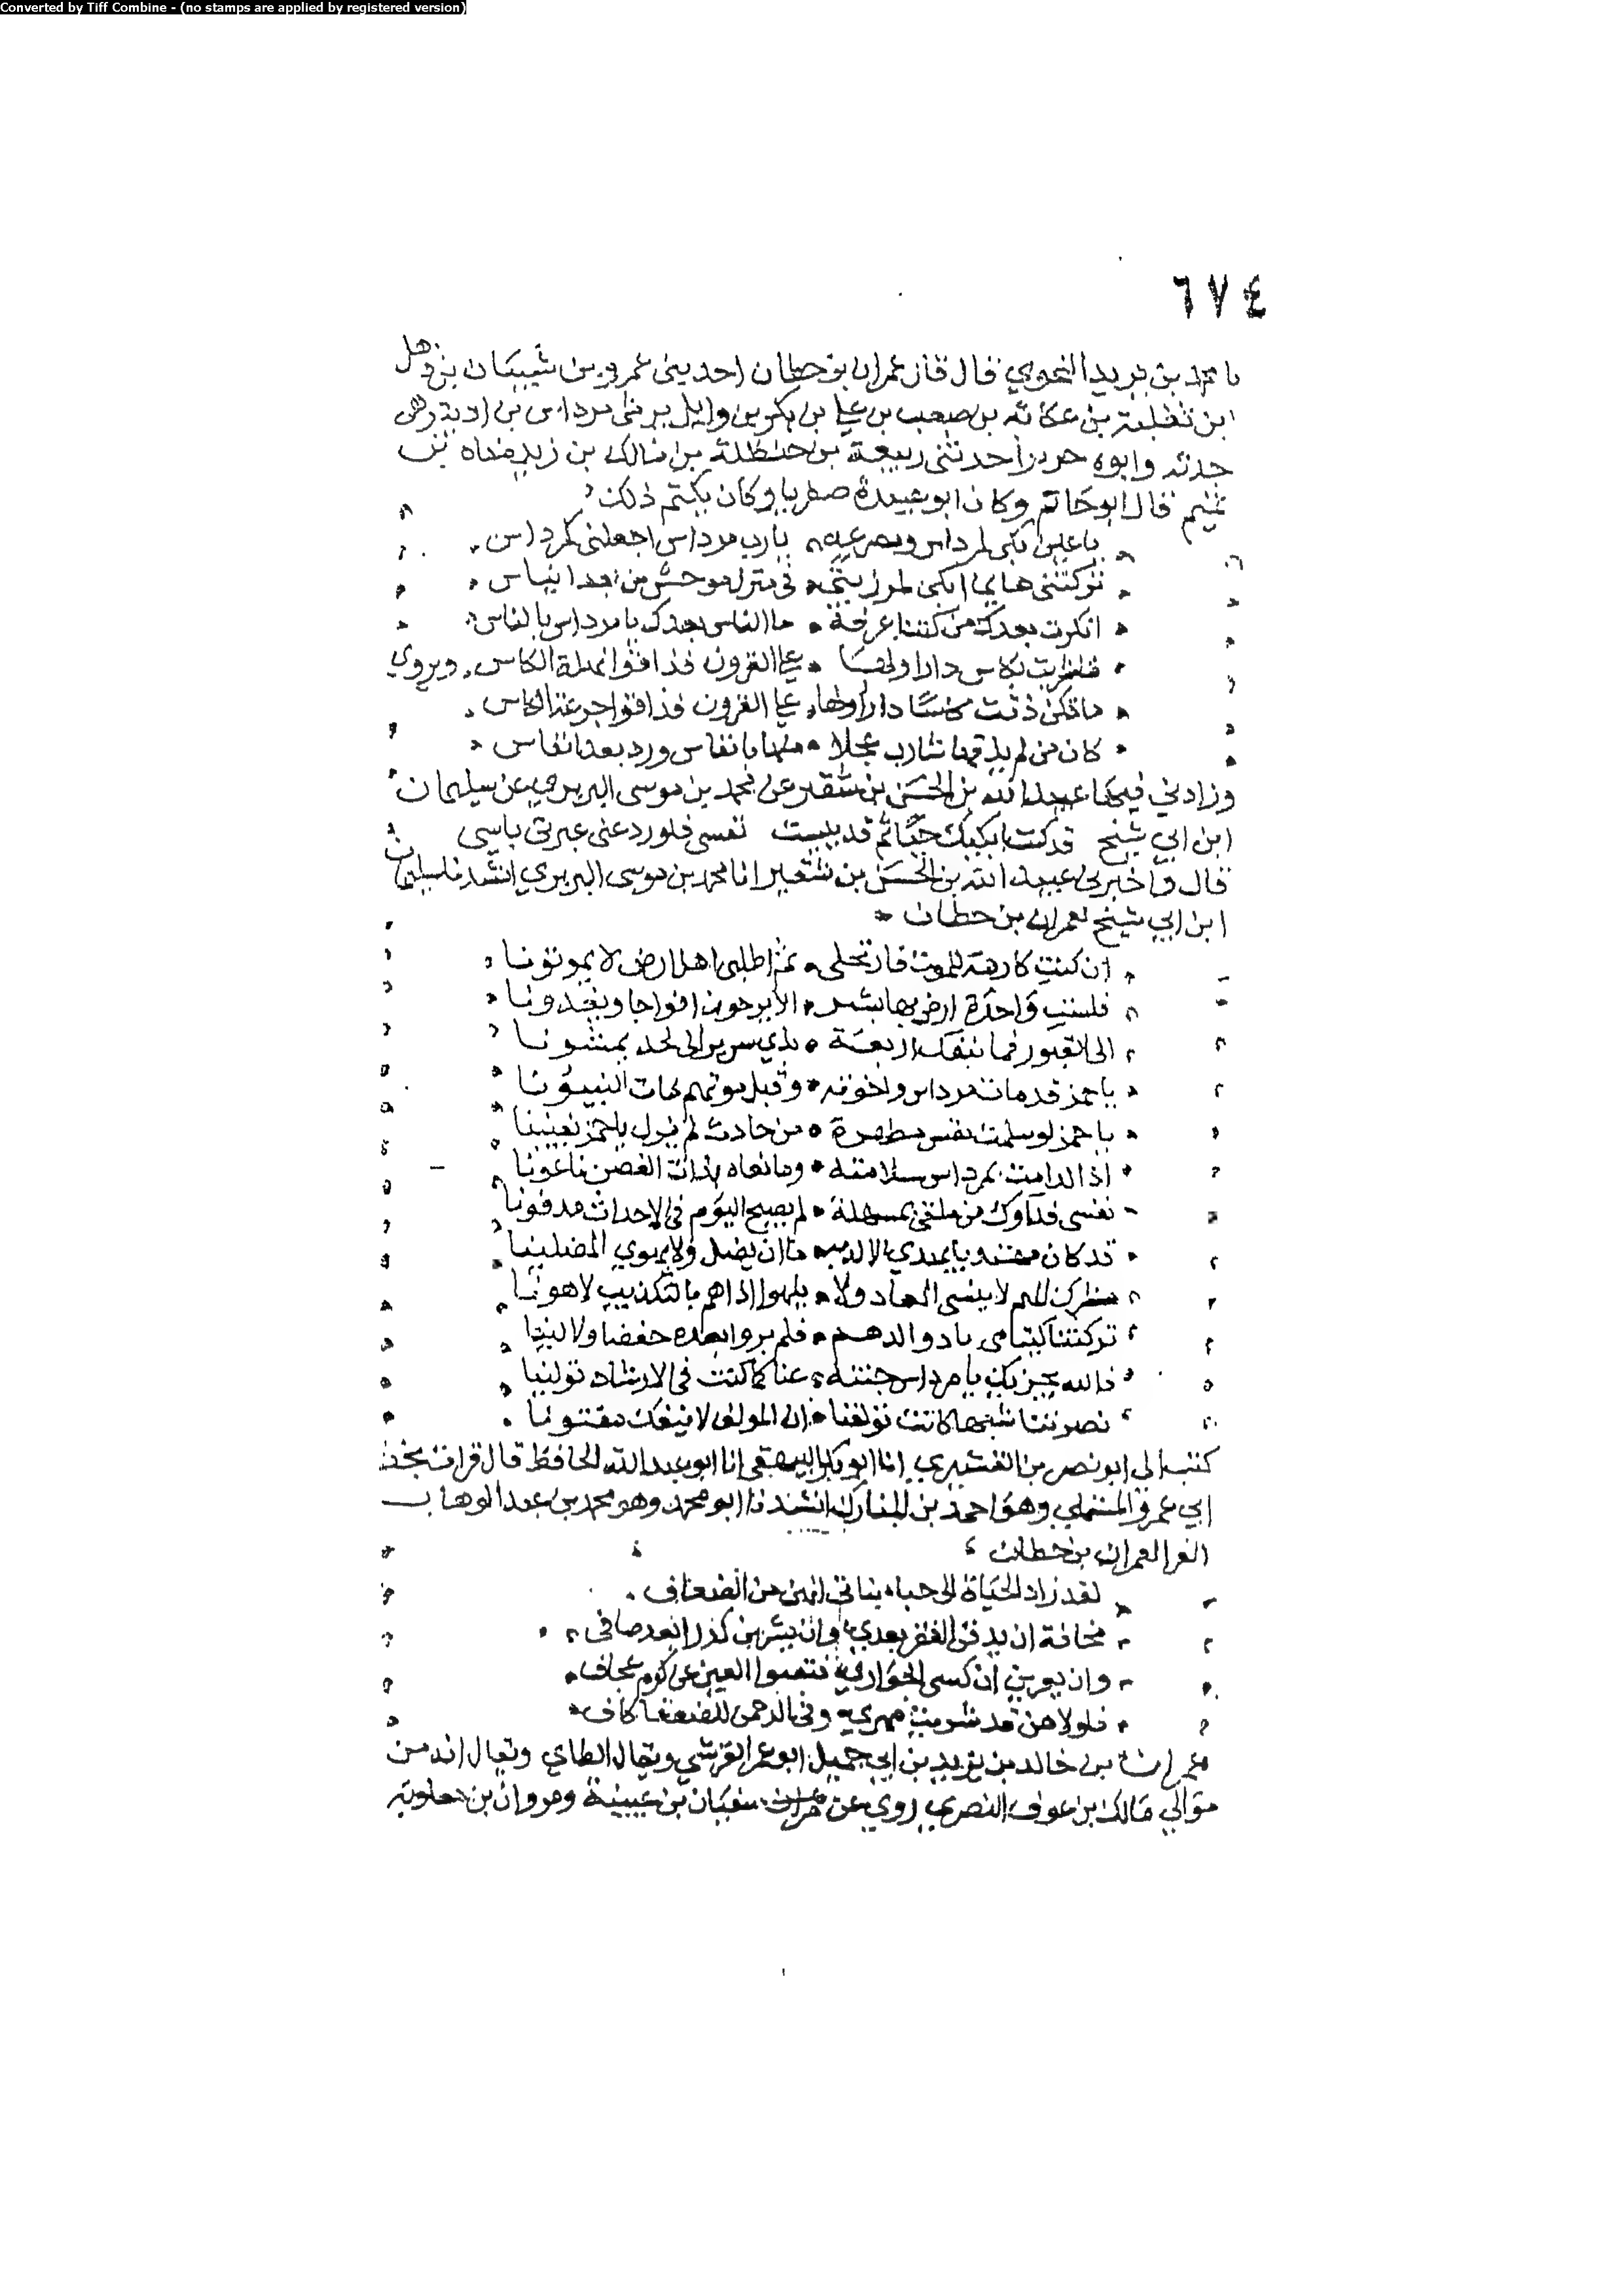 Converted by Tiff Combine - (no stamps are applied by registered version)
٦٧٤
نا محمد بن يزيد النحوي قال قال عمران بن حطان احد بني عمرو بن شيبان بن ذهل
ابن ثعلبة بن عكابه بن صعب بن علي بن بكر بن وايل يرثي مرداس بن ادية وهي
جدته وابوه حدير احد بني ربيعة بن حنظلة بن مالك بن زيد مناه بن
تميم قال ابو حاتم وكان ابو عبيدة صفريا وكان يكتم ذلك
يا عين بكي لمرداس ومصرعه يا رب مرداس اجعلني كمرداس
تركتني هايما ابكي لمرزيتي في منزل موحش من بعد ايناس
انكرت بعدك من كنت اعرفه ما الناس بعدك يا مرداس بالناس
بكاس دار اولها على القرون فذاقوا الكاس ويروى
ذقت كاسا دار اولها على القرون فذاقوا جرعة الكاس
كان من لم يذقها شارب عجلا منها بانفاس ورد بعد انفاس
وزادني فيها عبيد الله بن الحسن بن شقير عن محمد بن موسى البربري عن سليمان
ابن ابي شيخ قد كنت ابكيك حينا ثم قد يبست نفسي فلو رد عني عبرتي ياسي
قال واخبرني عبيد الله بن الحسن بن شقير انا محمد بن موسى البربري انشدنا سليمان
ابن ابي شيخ لعمران بن حطان
ان كنت كارهة للموت فارتحلي ثم اطلبي اهل ارض لا يموتونا
فلست واجدة ارض بها بشر الا يرحون افواجا ويغدونا
الى القبور فما تنفك اربعة بذي سرير الى لحد يمشونا
يا حمز قد مات مرداس واخوته وقبل موتهم مات النبيونا
يا حمز لو سلمت نفس مطهرة من حادث لم يزل يا حمز يعنينا
اذا لدامت بمرداس سلامته وما نعاه بذات الغصن ناعونا
نفسي فداوك من ملقى بمسهلة لم يصبح اليوم في الاحداث مدفونا
قد كان يهدي الاله به ما ان يضل ولا يهوي المضلينا
لا ينسى المعاد ولا يلهوا اذا هم بالتكذيب لاهونا
تركتنا كيتامى باد والدهم فلم يروا بعده خفضا ولا لينا
فالله يجزيك يا مرداس جنته عنا كما كنت في الارشاد تولينا
كانت ان المولى لا ينفك مفتونا
كتب الي ابو نصر بن القشيري انا ابو بكر البيهقي انا ابو عبد الله الحافظ قال قرات بخط
ابي عمرو المستملي وهو احمد بن المبارك انشدنا ابو محمد وهو محمد بن عبد الوهاب
الفرا لعمران بن حطان
لقد زاد الحياة الي حبا بناتي انهن من الضعاف
مخافة ان يذقن الفقر بعدي وان يشربن كدرا بعد صافي
وان يعرين ان كسي الجواري فتنبوا العين عن كرم عجاف
فلولا هن قد شريت مهري وفي الرحمن للضعفا كاف
عمران بن خالد بن يزيد بن ابي جميل ابو عمر القرشي ويقال الطاي ويقال انه من
موالي مالك بن عوف النصري روى عن سفيان بن عيينة ومروان بن معاوية